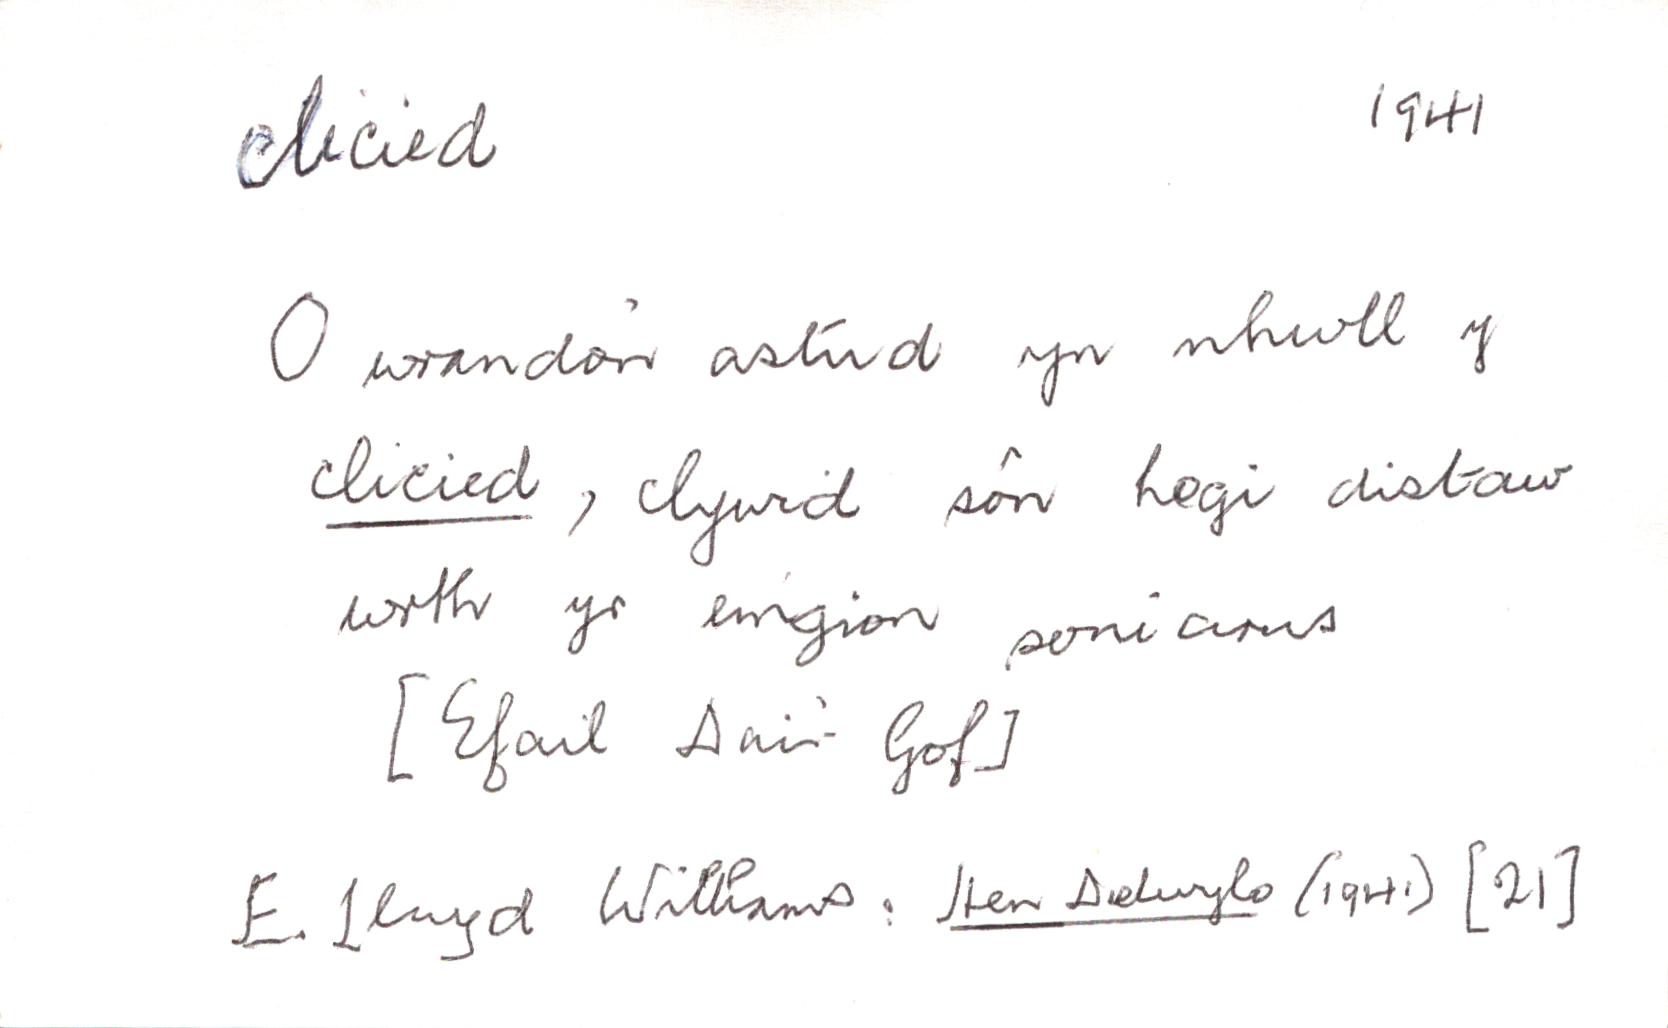 clicied 1941
O wrandon astud yn nhwll y
clicied, clywid sôn hogi distaw
wrth yr eingion soniarus
[Efail Dai'r Gof]
E. Llwyd Williams: Hen Ddwylo (1941) [21]